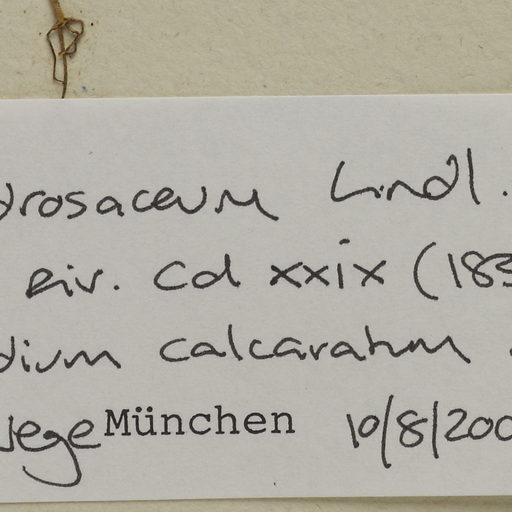 drosaceum Lindl.
eiv. Cd xxix (183
dium calcaratum
vege München 10/8/200